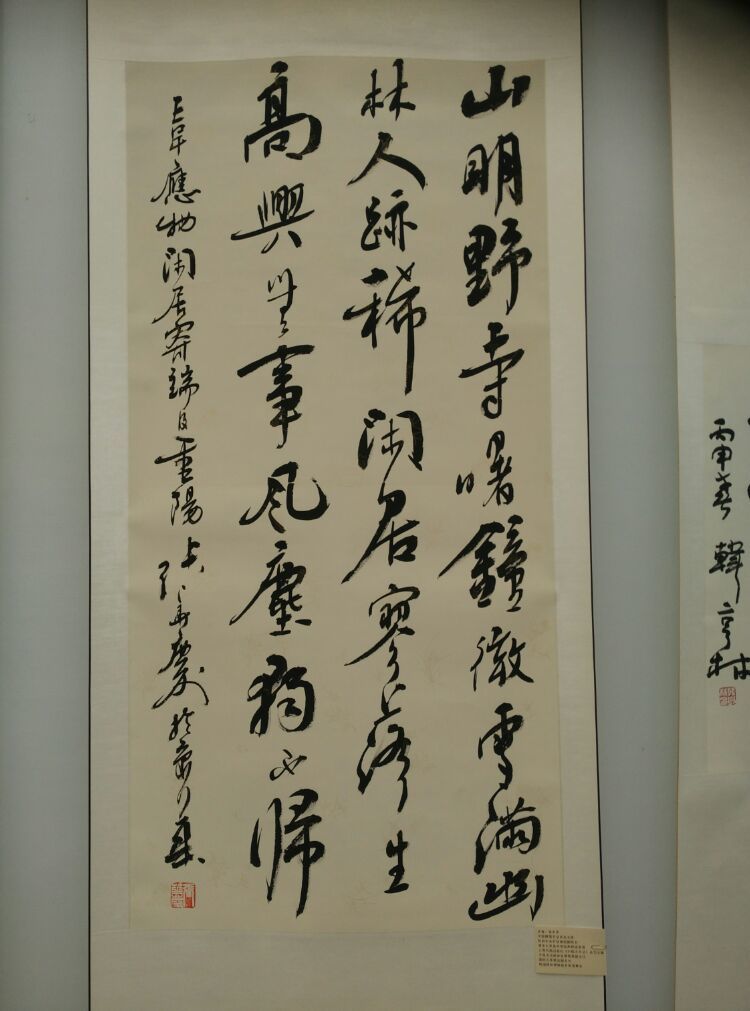 山明野寺曙鐘微雪滿幽
林人跡稀閑居寥落生
高興無事風塵獨不歸
韋應物閑居寄端及重陽 張華慶於
丙申春 韓亨林